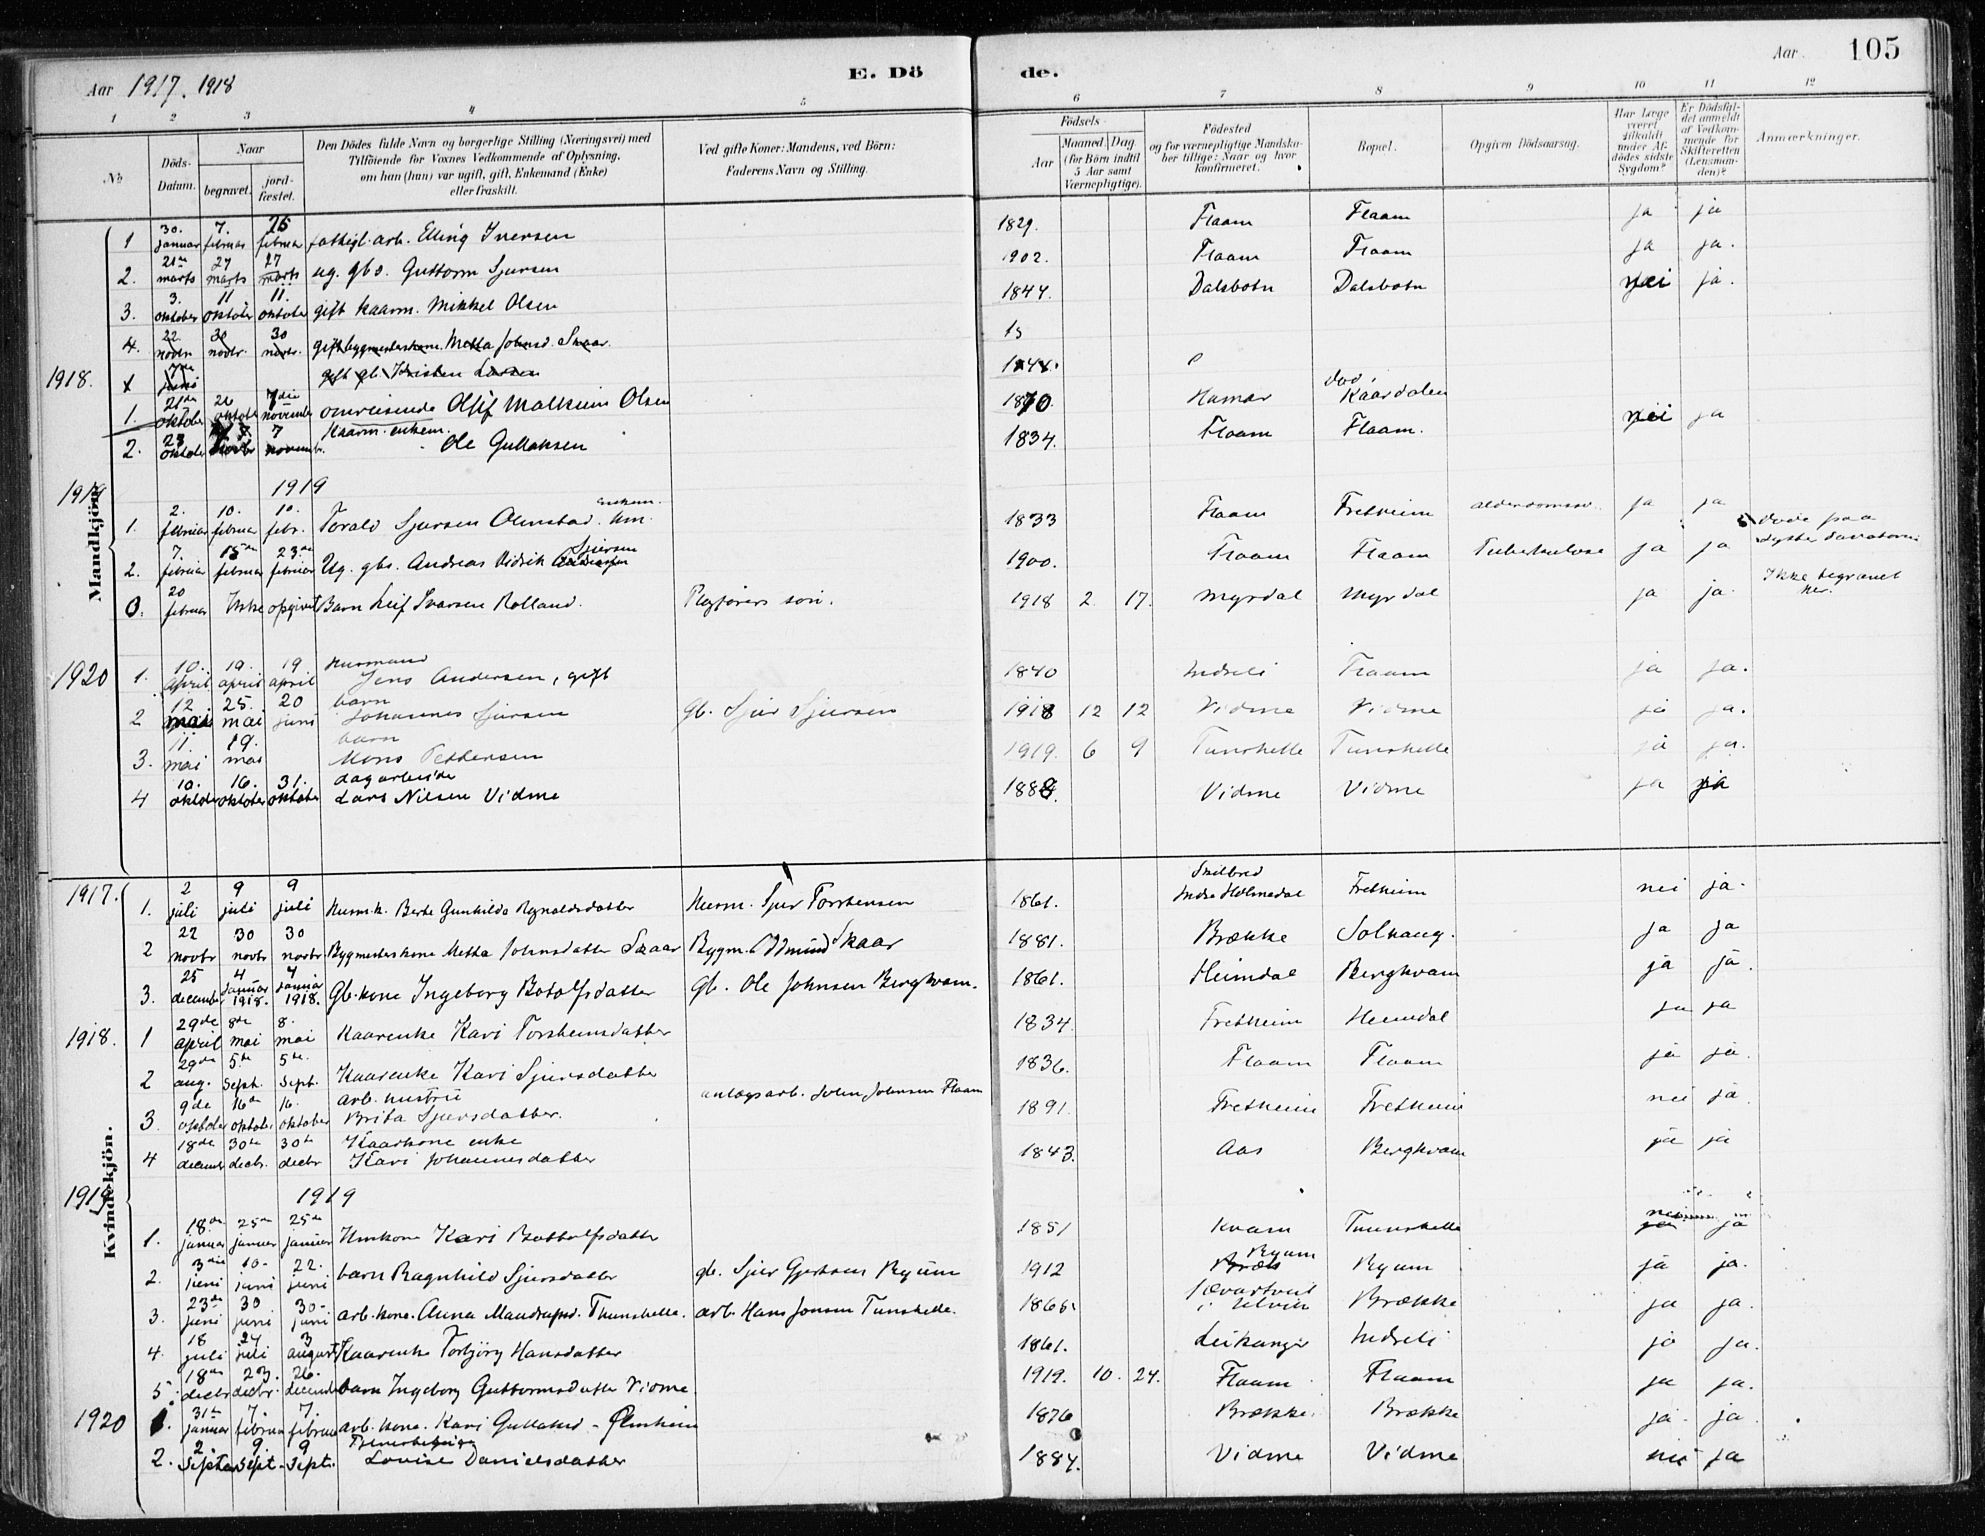 Aar 1917. 1918 E. Dö de. Aar. 105
1 2 3 4 5 6 7 8 9 10 11 12
№
Döds-Datum.
Naar
begravet.
jord-fæstet.
Den Dödes fulde Navn og borgerlige Stilling (Næringsvei) med
Tilföiende for Voxnes Vedkommende af Oplysning,
om han (hun) var ugift, gift, Enkemand (Enke)
eller fraskilt.
Ved gifte Koner: Mandens, ved Börn:
Faderens Navn og Stilling.
Födsels-
Aar
Maaned. Dag.
(for Börn indtil
5 Aar samt
Værnepligtige).
Födested
og for værnepligtige Mandska-
ber tillige: Naar og hvor
konfirmeret.
Bopæl.
Opgiven Dödsaarsag.
Har Læge
været
tilkaldt
under Af-
dödes sidste
Sygdom?
Er Dödsfal-
det anmeldt
af Vedkom-
mende for
Skifteretten
(Lensman-
den)?
Anmærkninger.
Mandkjön.
1 30. januar 7. februar 25 februar fattigl. arb. Elling Iversen 1829. Flaam Flaam ja ja
2. 21de marts 27 marts 27 marts ug. gbs. Guttorm Sjursen 1902. Flaam Flaam ja ja.
3. 3. oktober 11 oktober 11. oktober gift kaarm. Mikkel Olsen 1844. Dalsbotn Dalsbotn nei ja.
4. 22 novbr 30 novbr. 30 novbr. gift bygmesterkone Metta Johnsd. Skaar
1918. juni
1. 21de oktober oktober 7die november omreisende Olsen 1870. Hamar Kaardalen
2. 23 oktober novbr 7 november. Kaarm. enkem. Ole Gullaksen 1834. Flaam Flaam. nei ja
1919 1919
1. 2. februar 10. februar 10. febr. Torald Sjursen Olmstad. 1833 Flaam Fretheim ja ja
2. 7. februar 15de februar 23de februar Ug. gbs. Andreas Didrik Sjursen 1900. Flaam Flaam Tuberkulose ja ja döde paa
0. 20 februar Ikke opgivet Barn Leif Ivarsen Rolland. 1918 2 17. Myrdal Myrdal ja ja. Ikke begravet her.
1920 1. 10. april 19. april 19 april Husmand Jens Andersen, gift 1840 Indreli Flaam ja ja.
2 12 mai 25. mai 20 juni barn Johannes Sjursen gb. Sjur Sjursen 1918 12 12 Vidme Vidme ja ja.
3. 11. mai 19. mai barn Mons Pettersen 1919. 6 9 Tunshelle Tunshelle ja ja.
4 10. oktober 16. oktober 31. oktober dagarbeide Lars Nilsen Vidme 1888. Vidme Vidme ja ja
Kvindekjön.
1917. 1. 2 juli 9 juli 9 juli Husm.k. Berte Gunhilda Rgnaldsdatter Husm. Sjur Torstensen 1861. Indre Holmedal Fretheim nei ja.
2 22 novbr 30 novbr 30 novbr Bygmesterkone Metta Johnsdatter Skaar Bygm. Oddmund Skaar 1881. Brække Solhaug. ja ja
3. 25 december 4 januar 1918. 4 januar 1918. Gb. kone Ingeborg Botolfsdatter Gb. Ole Johnsen Berghvam. 1861. Heimdal Berghvam ja ja.
1918. 1 29de april 8de mai 8. mai Kaarenke Kari Torsteinsdatter 1834. Fretheim Heimdal ja ja
2 29de aug. 5te sept. 5te. sept. Kaarenke Kari Sjursdatter 1836. Flaam Flaam ja ja.
3. 9de oktober 16de oktober 16. oktober arb. hustru Brita Sjursdatter. anlægsarb. John Johnsen Flaam 1891. Fretheim Fretheim nei ja.
4 18de december 30te decbr. 30te decbr Kaarkone enke Kari Johannesdatter 1843. Aas Berghvam ja ja
1919 1919
1. 18de januar 25de januar 25de januar Hmkone Kari Bottolfsdatter 1851 Kvam Tunshelle nei ja
2. 3die juni 10. juni 22. juni barn Ragnhild Sjursdatter gb. Sjur Gjertsen Ryum 1912 Ryum Ryum ja ja.
3. 23de juni 30 juni 30. juni arb. kone. Anna Mandrupsd. Thunshelle. arb. Hans Jonsen Tunshelle. 1865. i Ulvik Brække ja ja.
4. 18 juli 27 juli 3 august Kaarenke Torbjörg Hansdatter 1861. Leikanger Indreli ja ja.
5 18de decbr 23. decbr. 26. december barn Ingeborg Guttormsdatter Vidme 1919. 10. 24. Flaam Flaam ja ja.
1920 1. 31te januar 7. februar 7. februar arb. kone. Kari Gullaksd. 1876 Brække Brække ja. ja.
2. 2. september 9. sept. 9 sept. Lovise Danielsdatter 1884. Vidme Vidme nei ja